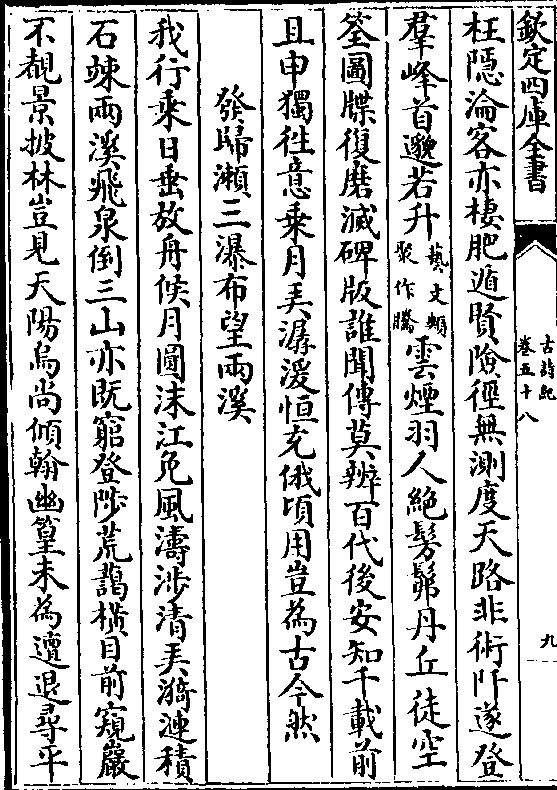 欽定四庫全書
古詩紀
卷五十八
九
枉隠淪客亦棲肥遁賢險徑無測度天路非術阡遂登
羣峰首邈若升藝文類聚作騰雲煙羽人絶髣髴丹丘徒空
筌圖牒復磨滅碑版誰聞傳莫辨百代後安知千載前
且申獨往意乗月弄潺湲恒充俄頃用豈為古今然
發歸瀨三瀑布望兩溪
我行乗日垂放舟候月圓沫江免風濤涉清弄漪漣積
石竦兩溪飛泉倒三山亦既窮登陟荒藹橫目前窺巖
不覩景披林豈見天陽烏尚傾翰幽篁未為邅退尋平